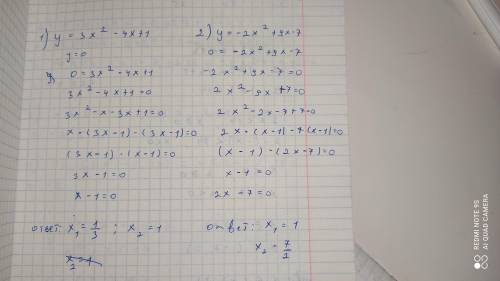 1) y = 3x² - 4x+1
y=0
0=3x² -4x+1
3x² -4x+1=0
3x² -x-3x+1=0
x·(3x-1)-(3x-1)=0
(3x-1)-(x-1)=0
3x-1=0
x-1=0
ответ: x₁ = 1/3 ; x₂ = 1
2) y=-2x²+9x-7
0=-2x²+9x-7
-2x²+9x-7=0
2x²-9x+7=0
2x²-2x-7+7=0
2x·(x-1)-7(x-1)=0
(x-1)-(2x-7)=0
x-1=0
2x-7=0
ответ: x₁ = 1
x₂ = 7/2
REDMI NOTE 9S
AI QUAD CAMERA